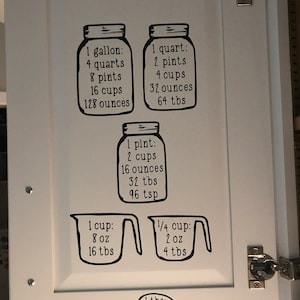 1 gallon:
4 quarts
8 pints
16 cups
128 ounces
1 quart:
2 pints
4 cups
32 ounces
64 tbs
1 pint:
2 cups
16 ounces
32 tbs
96 tsp
1 cup:
8 oz
16 tbs
1/4 cup:
2 oz
4 tbs